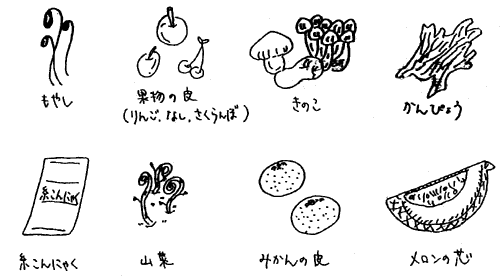 もやし
果物の皮
(りんご、なし、さくらんぼ)
きのこ
かんぴょう
糸こんにゃく
糸こんにゃく
山菜
みかんの皮
メロンの芯